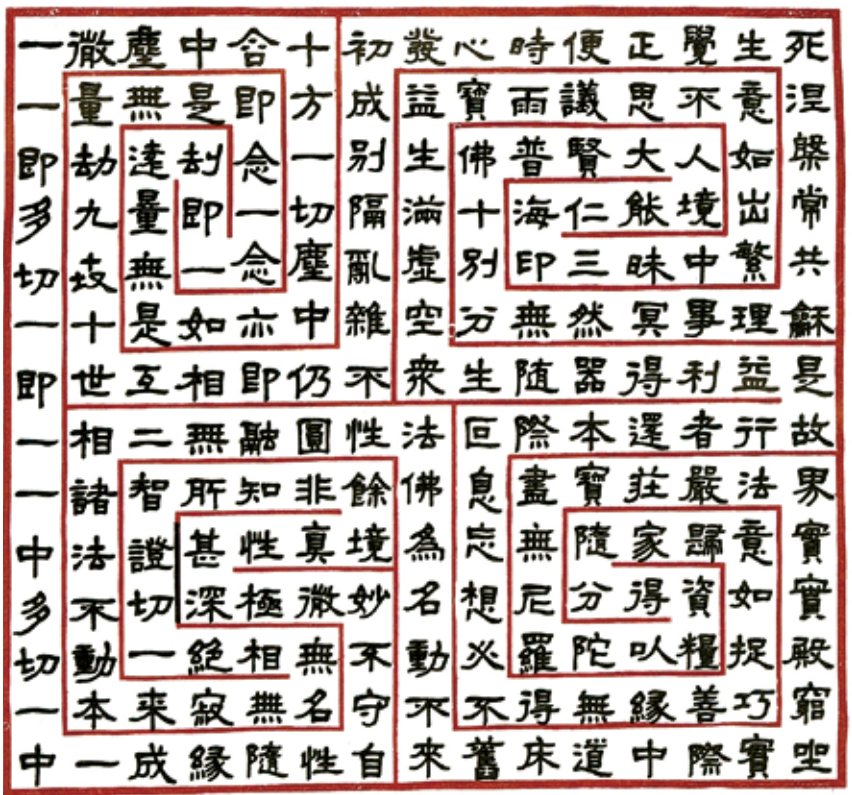 一微塵中含十初發心時便正覺生死
一量無是即方成益寶雨議思不意涅
即劫遠劫念一別生佛普賢大人如槃
多九量即一切隔滿十海仁能境出常
切世無一念塵亂虛別印三昧中繁共
一十是如亦中雜空分無然冥事理龢
即世互相即仍不衆生隨器得利益是
一相二無融圓性法叵際本還者行故
一諸智所知非餘佛息盡寶莊嚴法界
中法證甚性真境為忘無隨家歸意實
多不切深極微妙名想尼分得資如實
切動一絕相無不動必羅陀以糧捉殿
一本来寂無名守不不得無緣善巧窮
中一成緣隨性自來舊床道中際實坐